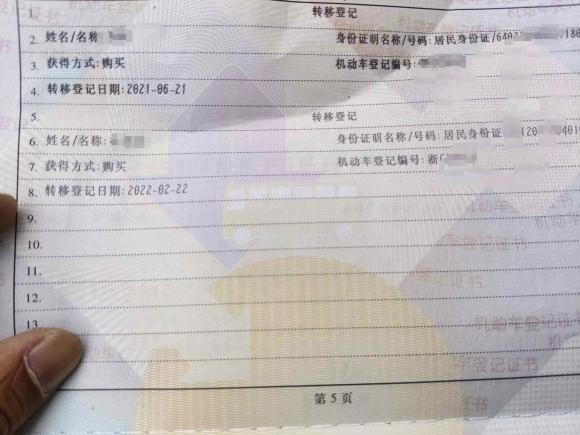 1. 转移登记
2. 姓名/名称: 身份证明名称/号码: 居民身份证/640 180
3. 获得方式: 购买 机动车登记编号:
4. 转移登记日期: 2021-06-21
5. 转移登记
6. 姓名/名称: 身份证明名称/号码: 居民身份证 120 0401
7. 获得方式: 购买 机动车登记编号: 浙
8. 转移登记日期: 2022-02-22
9.
10.
11.
12.
13.
机动车登记证书
机动车登记证
车登记证书
登记证书
机动车登记证书
车登记证书
第 5 页